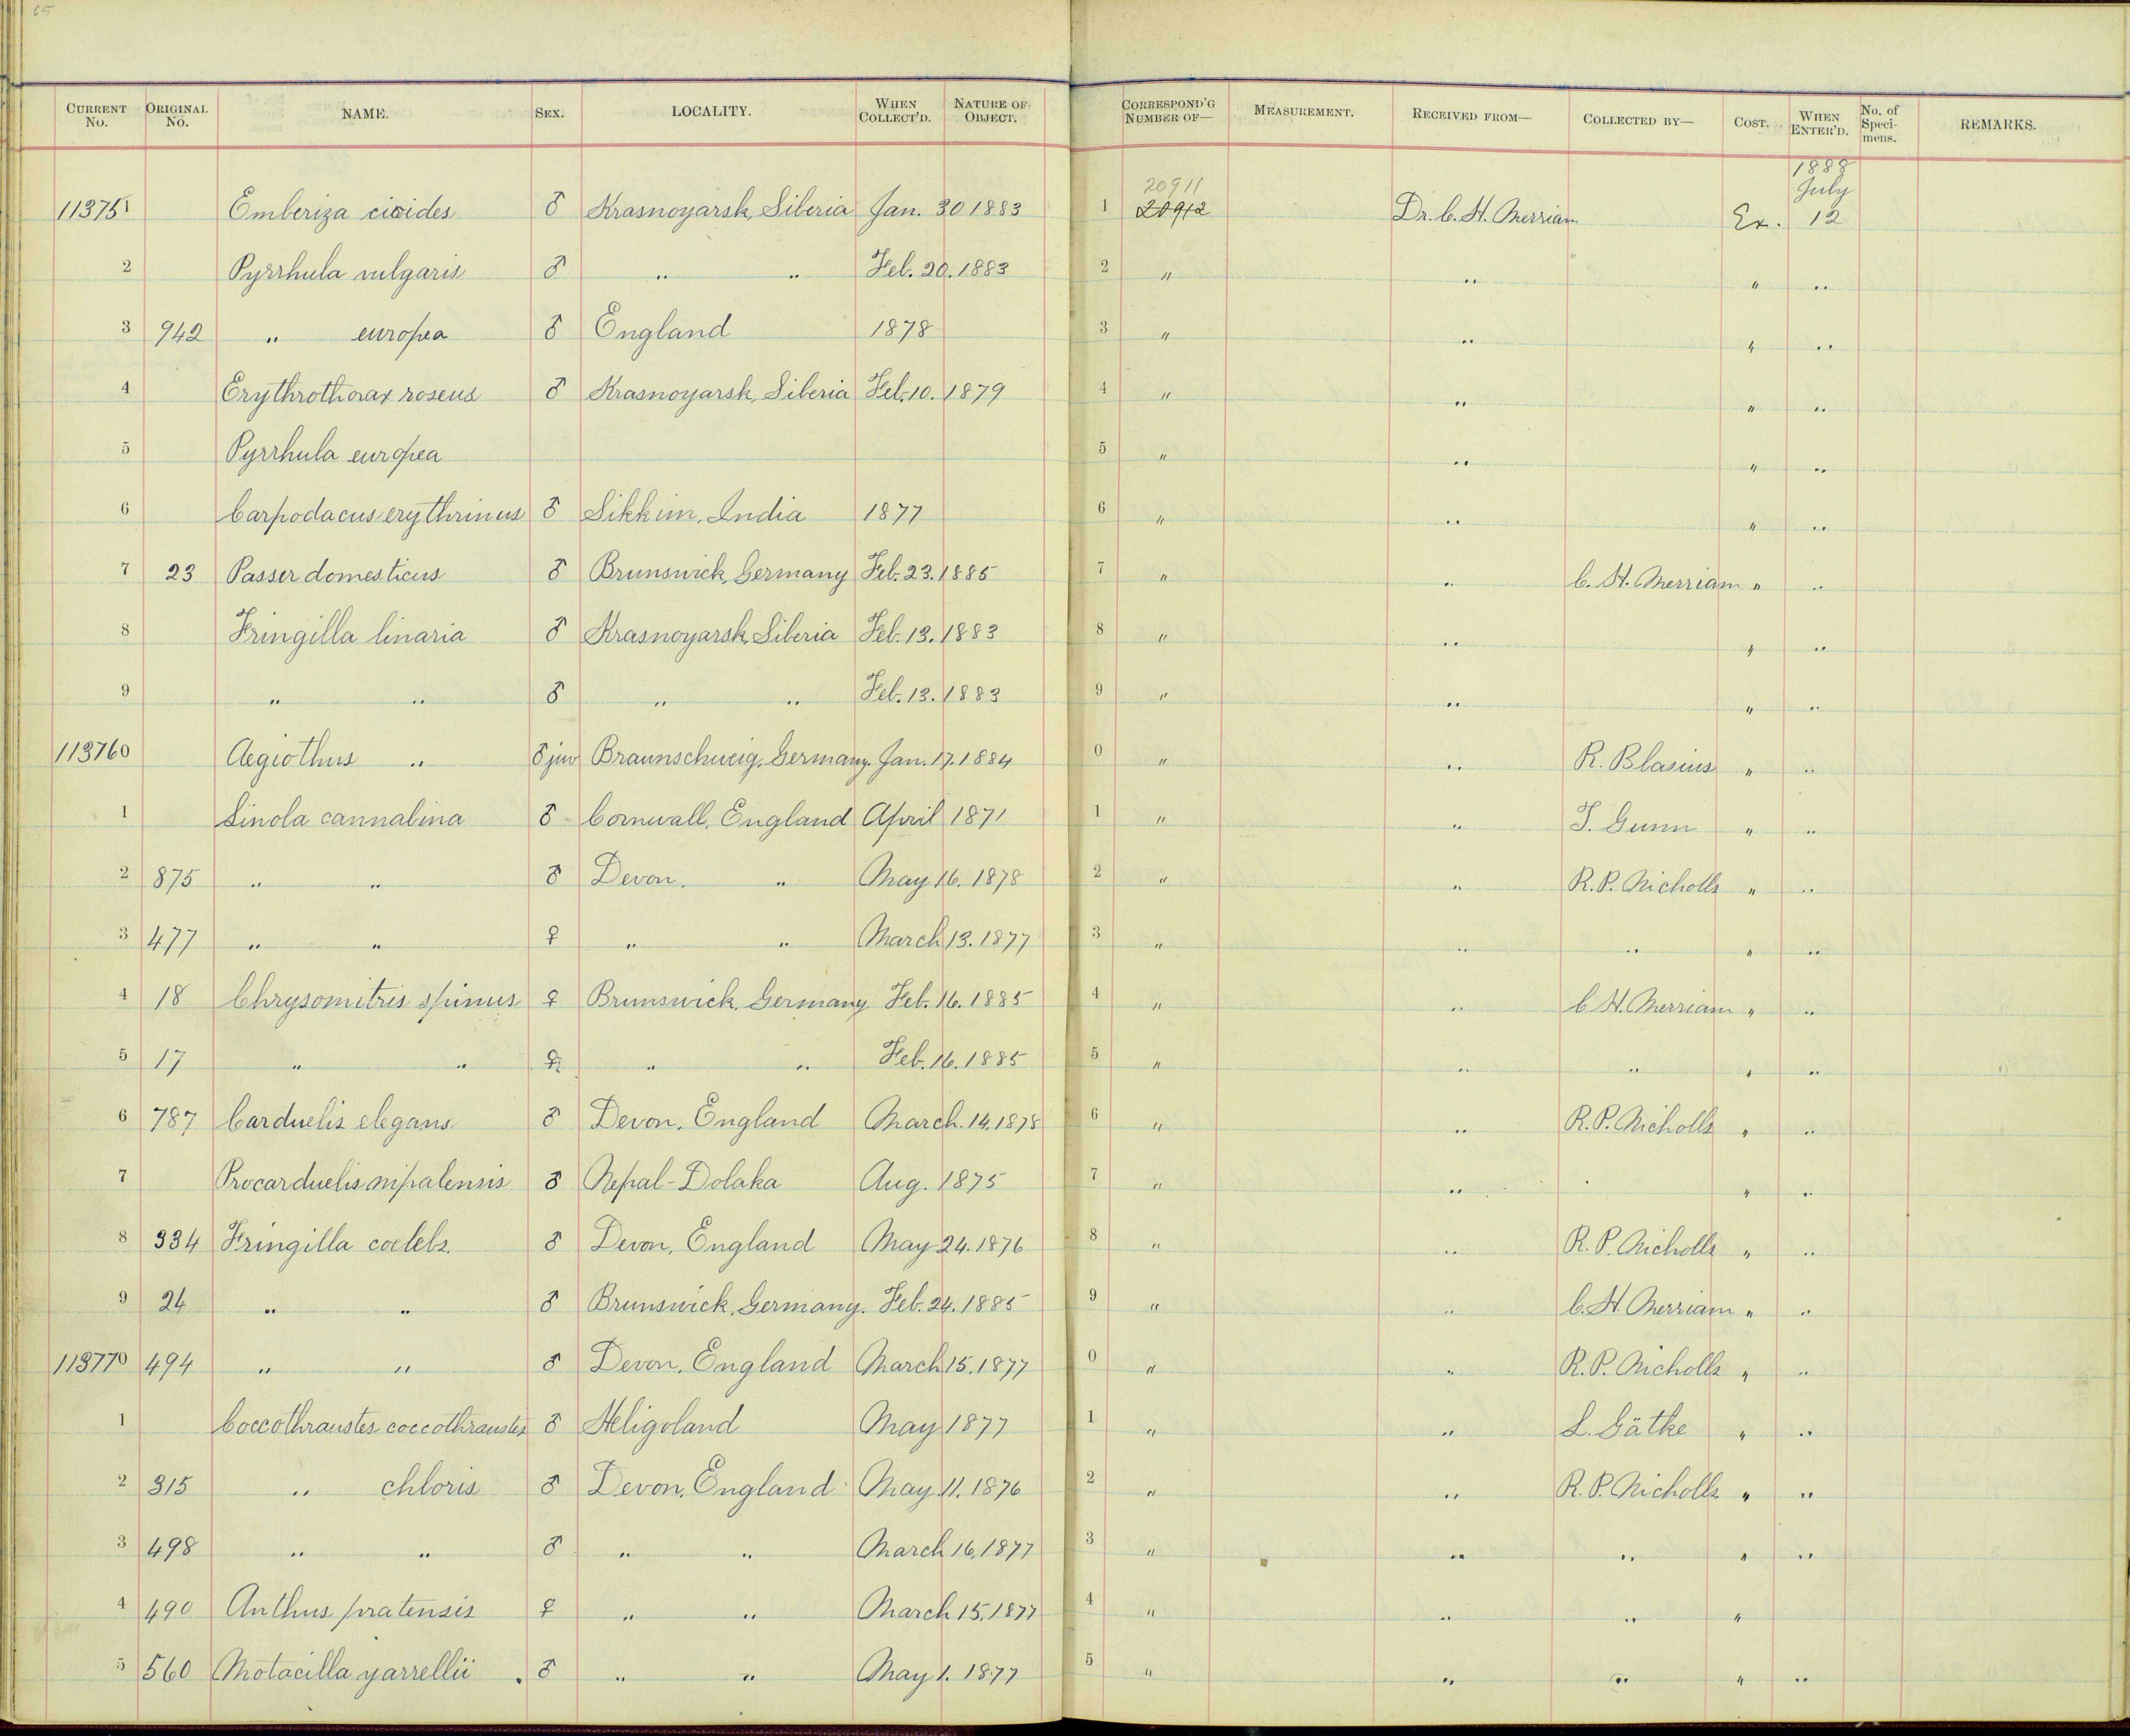 65
CURRENT No. ORIGINAL No. NAME. SEX. LOCALITY. WHEN COLLECT'D. NATURE OF OBJECT. CORRESPOND'G NUMBER OF— MEASUREMENT. RECEIVED FROM— COLLECTED BY— COST. WHEN ENTER'D. No. of Speci-mens. REMARKS.
1888
20911 July
113751 Emberiza cioides ♂ Krasnoyarsk, Siberia Jan. 30 1883 1 20912 Dr. C. H. Merriam Ex. 12
2 Pyrrhula vulgaris ♂ " " Feb. 20. 1883 2 " " " "
3 942 " europea ♂ England 1878 3 " " " "
4 Erythrothorax roseus ♂ Krasnoyarsk, Siberia Feb. 10. 1879 4 " " " "
5 Pyrrhula europea 5 " " " "
6 Carpodacus erythrinus ♂ Sikkim, India 1877 6 " " " "
7 23 Passer domesticus ♂ Brunswick, Germany Feb. 23. 1885 7 " " C. H. Merriam " "
8 Fringilla linaria ♂ Krasnoyarsk, Siberia Feb. 13. 1883 8 " " " "
9 " " ♂ " " Feb. 13. 1883 9 " " " "
113760 Aegiothus " ♂ juv Braunschweig, Germany. Jan. 17. 1884 0 " " R. Blasius " "
1 Linola cannabina ♂ Cornwall, England April 1871 1 " " T. Gunn " "
2 875 " " ♂ Devon, " May 16. 1878 2 " " R. P. Nicholls " "
3 477 " " ♀ " " March 13. 1877 3 " " " " "
4 18 Chrysomitris spinus ♀ Brunswick, Germany Feb. 16. 1885 4 " " C. H. Merriam " "
5 17 " " ♀ " " Feb. 16. 1885 5 " " " " "
6 787 Carduelis elegans ♂ Devon, England March. 14. 1878 6 " " R. P. Nicholls " "
7 Procarduelis nipalensis ♂ Nepal - Dolaka Aug. 1875 7 " " " "
8 334 Fringilla coelebs. ♂ Devon, England May 24. 1876 8 " " R. P. Nicholls " "
9 24 " " ♂ Brunswick, Germany. Feb. 24. 1885 9 " " C. H. Merriam " "
113770 494 " " ♂ Devon, England March 15. 1877 0 " " R. P. Nicholls " "
1 Coccothraustes coccothraustes ♂ Heligoland May 1877 1 " " L. Gätke " "
2 315 " chloris ♂ Devon, England May. 11. 1876 2 " " R. P. Nicholls " "
3 498 " " ♂ " " March 16, 1877 3 " " " " "
4 490 Anthus pratensis ♀ " " March 15. 1877 4 " " " "
5 560 Motacilla yarrellii ♂ " " May 1. 1877 5 " " " " "